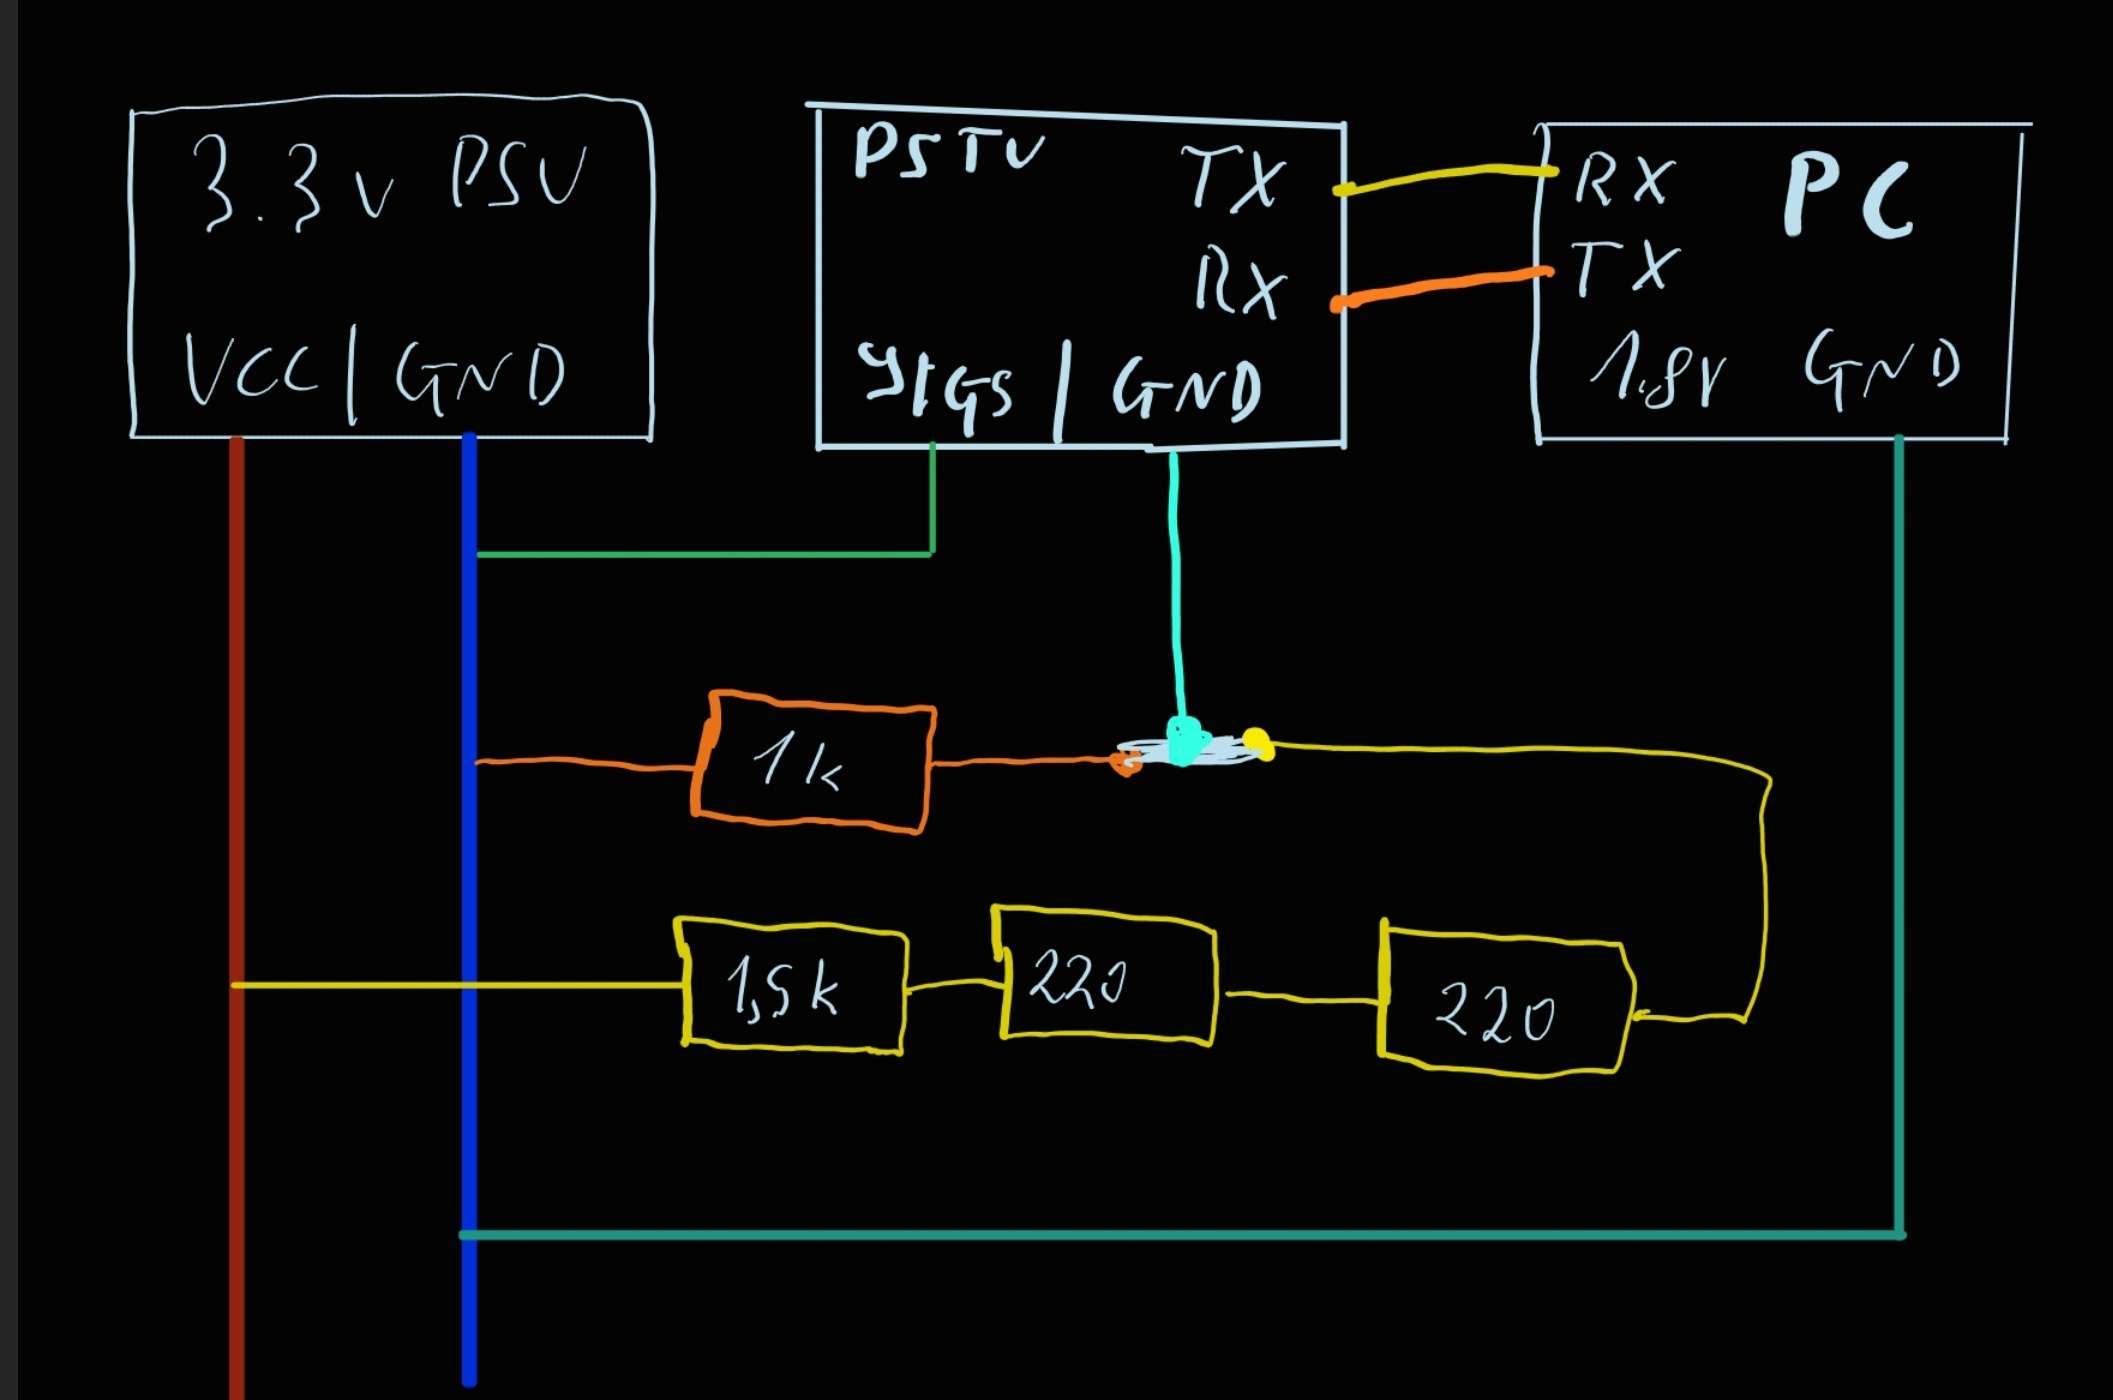 3.3v PSU
VCC | GND
PSTV TX
RX
GND
RX PC
TX
1.8V GND
1k
1,5k 220 220